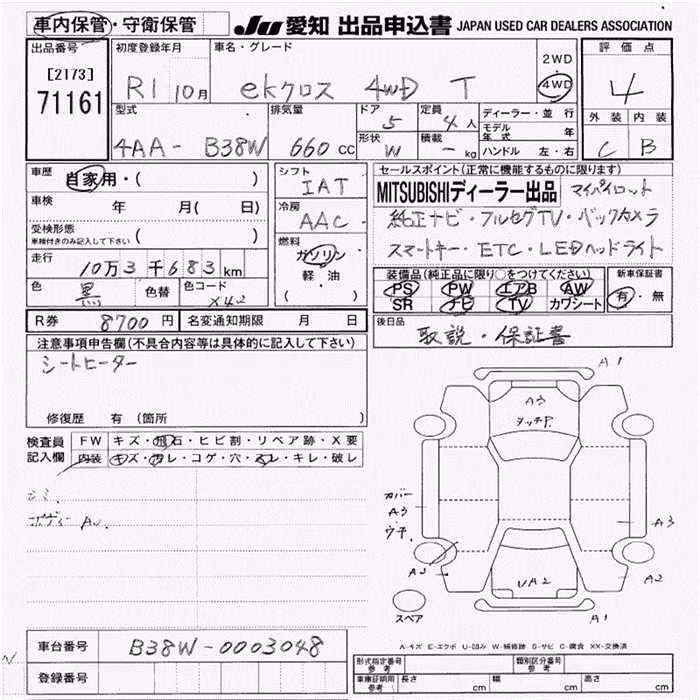 車内保管・守衛保管 JU 愛知 出品申込書 JAPAN USED CAR DEALERS ASSOCIATION
出品番号 初度登録年月 車名・グレード 評価点
[2173] R1 10月 ekクロス 4WD T 2WD 4WD 4
71161
型式 排気量 ドア 定員 ディーラー・並行 外装 内装
4AA- B38W 660 CC 5 4人 モデル年式 年
形状 W 積載 - kg ハンドル 左・右 C B
車歴 自家用・( ) シフト IAT セールスポイント(正常に機能するものに限ります)
車検 年 月( 日) 冷房 AAC MITSUBISHIディーラー出品 マイパイロット
受検形態 車検付きのみ記入して下さい ( ) 純正ナビ・フルセグTV・バックカメラ
燃料 ガソリン 軽・油 ( ) スマートキー・ETC・LEDヘッドライト
走行 10万3千683km
装備品(純正品に限り○をつけてください) 新車保証書
色 黒 色替 色コード X42 PS PW エアB AW 有・無
SR ナビ TV カワシート
R券 8700円 名変通知期限 月 日 後日品
取説・保証書
注意事項申告欄(不具合内容等は具体的に記入して下さい)
シートヒーター
修復歴 有 (箇所 )
検査員記入欄 FW キズ・飛石・ヒビ割・リペア跡・X要
内装 キズ・汚レ・コゲ・穴・スレ・キレ・破レ
ボディー
A1
A3
タッチP.
カバー
A3
ウチ
A3
A2
A2
UA2
A1
スペア
A-キズ E-エクボ U-凹み W-補修跡 S-サビ C-腐食 XX-交換済
車台番号 B38W-0003048
登録番号
形式指定番号 参考 類別区分番号 参考
車庫証明用 参考 長さ cm 幅 cm 高さ cm